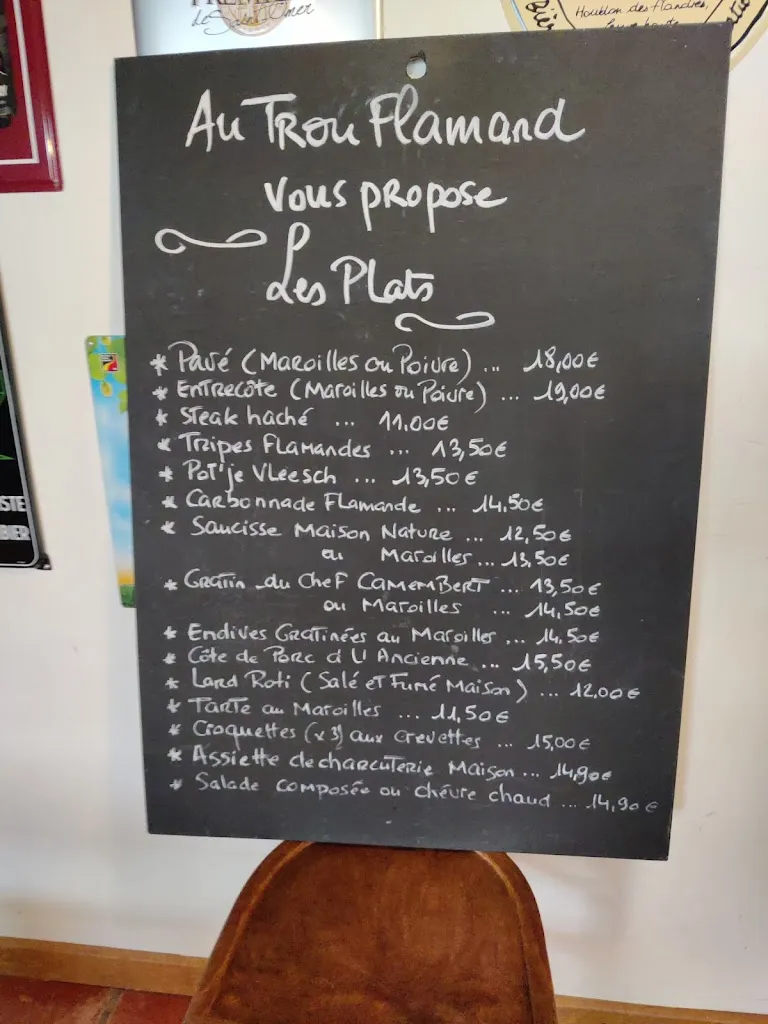 PREMIER
de Saint Omer
Bière
Houblon des Flandres,
Au Trou Flamand
vous propose
Les Plats
* Pavé (Maroilles ou Poivre) ... 18,00€
* Entrecôte (Maroilles ou Poivre) ... 19,00€
* Steak haché ... 11.00€
* Tripes Flamandes ... 13,50€
* Pot'je Vleesch ... 13,50€
* Carbonnade Flamande ... 14.50€
* Saucisse Maison Nature ... 12,50€
ou Maroilles ... 13,50€
* Gratin du Chef CamemBert ... 13,50€
ou Maroilles ... 14,50€
* Endives Gratinées au Maroilles ... 14,50€
* Côte de Porc à L'Ancienne ... 15,50€
* Lard Roti (Salé et Fumé Maison) ... 12.00€
* Tarte au Maroilles ... 11,50€
* Croquettes (x3) aux crevettes ... 15,00€
* Assiette de charcuterie Maison ... 14,90€
* Salade composée ou chèvre chaud ... 14,90€